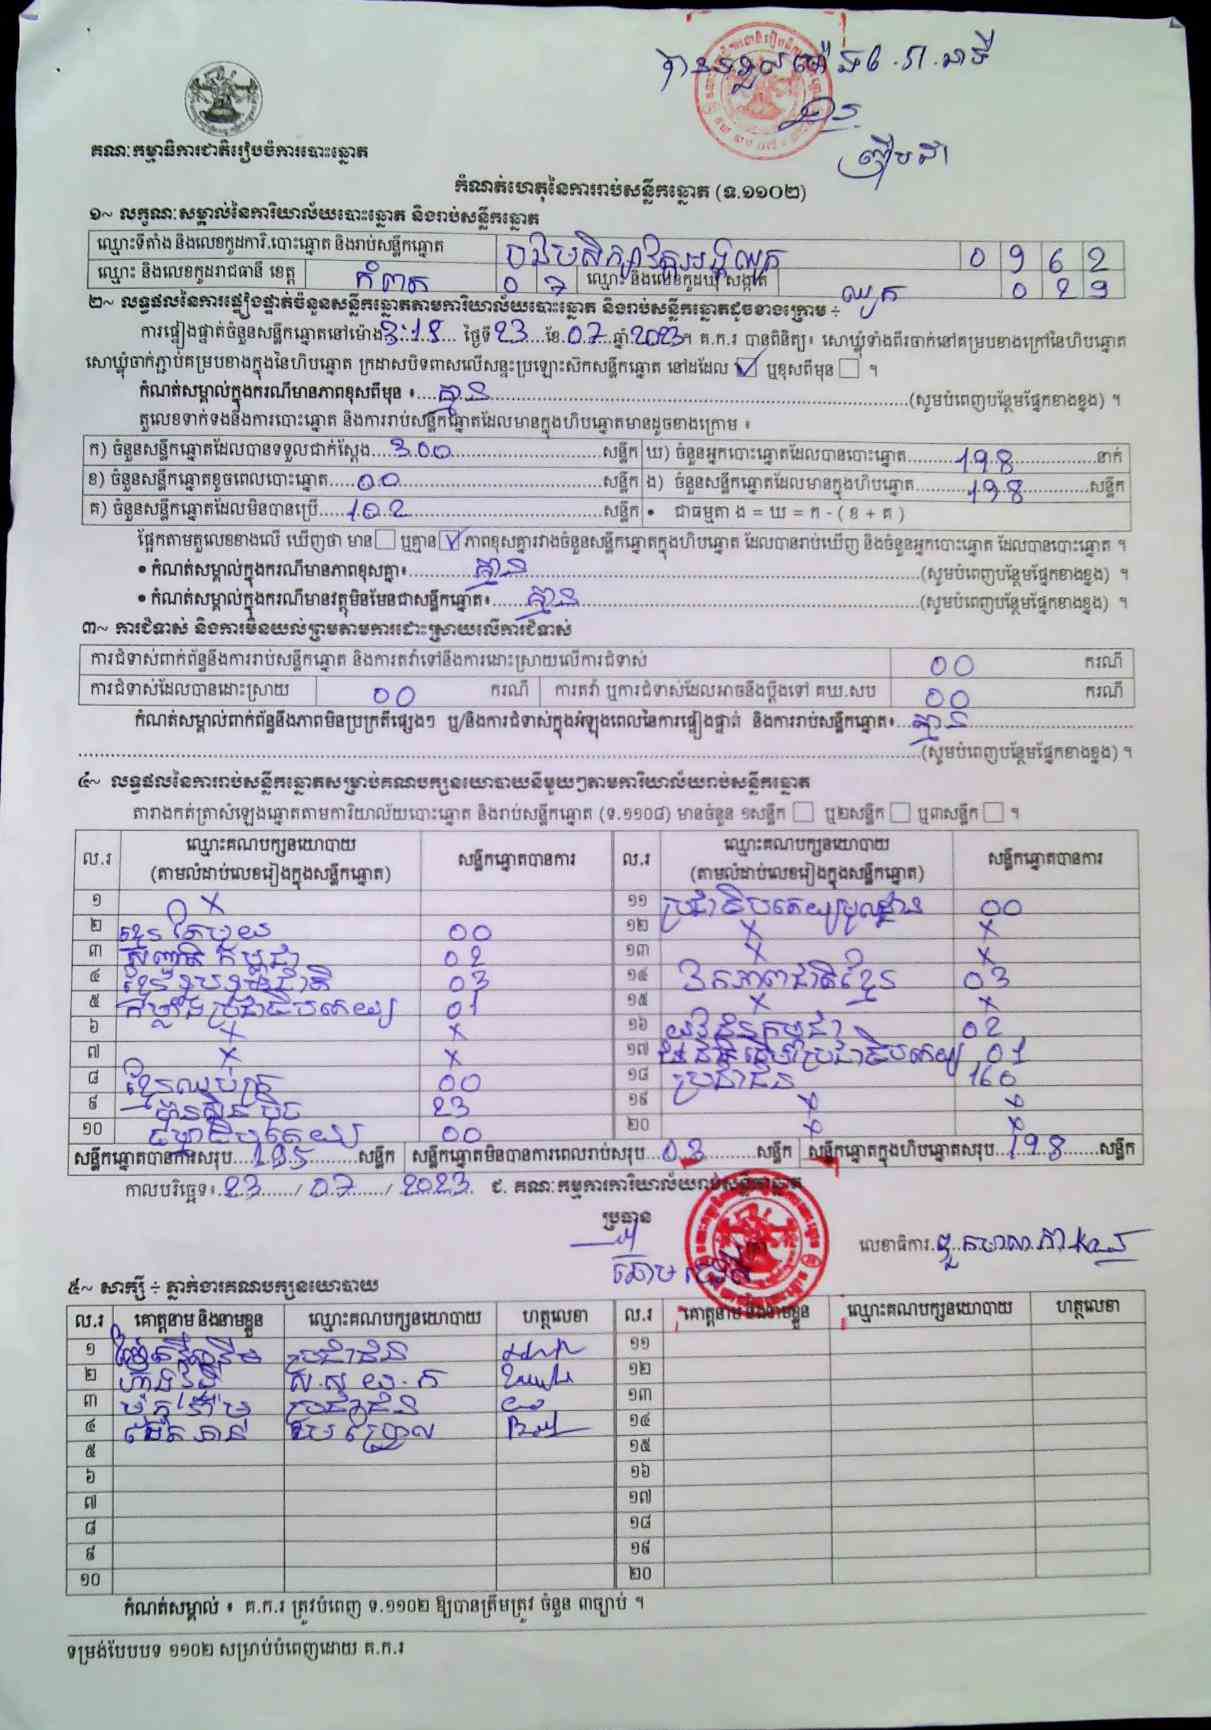 គណៈកម្មាធិការជាតិរៀបចំការបោះឆ្នោត
កំណត់ហេតុនៃការរាប់សន្លឹកឆ្នោត (ទ.១១០២)
១~ លក្ខណៈសម្គាល់នៃការិយាល័យបោះឆ្នោត និងរាប់សន្លឹកឆ្នោត
ឈ្មោះទីតាំង និងលេខកូដការិ.បោះឆ្នោត និងរាប់សន្លឹកឆ្នោត 0 9 6 2
ឈ្មោះ និងលេខកូដរាជធានី ខេត្ត កំពត 0 7 ឈ្មោះ និងលេខកូដឃុំ សង្កាត់ ឈូក 0 2 9
២~ លទ្ធផលនៃការផ្ទៀងផ្ទាត់ចំនួនសន្លឹកឆ្នោតតាមការិយាល័យបោះឆ្នោត និងរាប់សន្លឹកឆ្នោតដូចខាងក្រោម ÷
ការផ្ទៀងផ្ទាត់ចំនួនសន្លឹកឆ្នោតនៅម៉ោង 3:18 ថ្ងៃទី 23 ខែ 07 ឆ្នាំ 2023 ។ គ.ក.រ បានពិនិត្យ៖ សោឃ្លុំទាំងពីរចាក់នៅគម្របខាងក្រៅនៃហិបឆ្នោត
សោឃ្លុំចាក់ភ្ជាប់គម្របខាងក្នុងនៃហិបឆ្នោត ក្រដាសបិទពាសលើសន្ទះប្រឡោះស៊កសន្លឹកឆ្នោត នៅដដែល ☑ ឬខុសពីមុន ☐ ។
កំណត់សម្គាល់ក្នុងករណីមានភាពខុសពីមុន ៖ គ្មាន (សូមបំពេញបន្ថែមផ្នែកខាងខ្នង) ។
តួលេខទាក់ទងនឹងការបោះឆ្នោត និងការរាប់សន្លឹកឆ្នោតដែលមានក្នុងហិបឆ្នោតមានដូចខាងក្រោម ៖
ក) ចំនួនសន្លឹកឆ្នោតដែលបានទទួលជាក់ស្តែង 300 សន្លឹក ឃ) ចំនួនអ្នកបោះឆ្នោតដែលបានបោះឆ្នោត 198 នាក់
ខ) ចំនួនសន្លឹកឆ្នោតខូចពេលបោះឆ្នោត 00 សន្លឹក ង) ចំនួនសន្លឹកឆ្នោតដែលមានក្នុងហិបឆ្នោត 198 សន្លឹក
គ) ចំនួនសន្លឹកឆ្នោតដែលមិនបានប្រើ 102 សន្លឹក • ជាធម្មតា ង = ឃ = ក - ( ខ + គ )
ផ្អែកតាមតួលេខខាងលើ ឃើញថា មាន ☐ ឬគ្មាន ☑ ភាពខុសគ្នារវាងចំនួនសន្លឹកឆ្នោតក្នុងហិបឆ្នោត ដែលបានរាប់ឃើញ និងចំនួនអ្នកបោះឆ្នោត ដែលបានបោះឆ្នោត ។
• កំណត់សម្គាល់ក្នុងករណីមានភាពខុសគ្នា៖ គ្មាន (សូមបំពេញបន្ថែមផ្នែកខាងខ្នង) ។
• កំណត់សម្គាល់ក្នុងករណីមានវត្ថុមិនមែនជាសន្លឹកឆ្នោត៖ គ្មាន (សូមបំពេញបន្ថែមផ្នែកខាងខ្នង) ។
៣~ ការជំទាស់ និងការមិនយល់ព្រមតាមការដោះស្រាយលើការជំទាស់
ការជំទាស់ពាក់ព័ន្ធនឹងការរាប់សន្លឹកឆ្នោត និងការតវ៉ាទៅនឹងការដោះស្រាយលើការជំទាស់ 00 ករណី
ការជំទាស់ដែលបានដោះស្រាយ 00 ករណី ការតវ៉ា ឬការជំទាស់ដែលអាចនឹងប្តឹងទៅ គឃ.សប 00 ករណី
កំណត់សម្គាល់ពាក់ព័ន្ធនឹងភាពមិនប្រក្រតីផ្សេងៗ ឬ/និងការជំទាស់ក្នុងអំឡុងពេលនៃការផ្ទៀងផ្ទាត់ និងការរាប់សន្លឹកឆ្នោត៖ គ្មាន
(សូមបំពេញបន្ថែមផ្នែកខាងខ្នង) ។
៤~ លទ្ធផលនៃការរាប់សន្លឹកឆ្នោតសម្រាប់គណបក្សនយោបាយនីមួយៗតាមការិយាល័យរាប់សន្លឹកឆ្នោត
តារាងកត់ត្រាសំឡេងឆ្នោតតាមការិយាល័យបោះឆ្នោត និងរាប់សន្លឹកឆ្នោត (ទ.១១០៨) មានចំនួន ១សន្លឹក ☐ ឬ២សន្លឹក ☐ ឬ៣សន្លឹក ☐ ។
ល.រ ឈ្មោះគណបក្សនយោបាយ (តាមលំដាប់លេខរៀងក្នុងសន្លឹកឆ្នោត) សន្លឹកឆ្នោតបានការ ល.រ ឈ្មោះគណបក្សនយោបាយ (តាមលំដាប់លេខរៀងក្នុងសន្លឹកឆ្នោត) សន្លឹកឆ្នោតបានការ
១ X ១១ ប្រជាធិបតេយ្យមូលដ្ឋាន 00
២ ខ្មែរតែមួយ 00 ១២ X X
៣ សញ្ជាតិកម្ពុជា 02 ១៣ X X
៤ ខ្មែររួបរួមជាតិ 03 ១៤ ឯកភាពជាតិខ្មែរ 03
៥ កម្លាំងប្រជាធិបតេយ្យ 01 ១៥ X X
៦ X X ១៦ យុវជនកម្ពុជា 02
៧ X X ១៧ ប្រជាធិបតេយ្យ 01
៨ ខ្មែរឈប់ក្រ 00 ១៨ ប្រជាជន 160
៩ ហ្វ៊ុនស៊ិនប៉ិច 23 ១៩ X X
១០ ធម្មាធិបតេយ្យ 00 ២០ X X
សន្លឹកឆ្នោតបានការសរុប 195 សន្លឹក សន្លឹកឆ្នោតមិនបានការពេលរាប់សរុប 03 សន្លឹក សន្លឹកឆ្នោតក្នុងហិបឆ្នោតសរុប 198 សន្លឹក
កាលបរិច្ឆេទ៖ 23 / 07 / 2023 ជ. គណៈកម្មការការិយាល័យរាប់សន្លឹកឆ្នោត
ប្រធាន
លេខាធិការ
៥~ សាក្សី ÷ ភ្នាក់ងារគណបក្សនយោបាយ
ល.រ គោត្តនាម និងនាមខ្លួន ឈ្មោះគណបក្សនយោបាយ ហត្ថលេខា ល.រ គោត្តនាម និងនាមខ្លួន ឈ្មោះគណបក្សនយោបាយ ហត្ថលេខា
១ ប្រជាជន ១១
២ ស.ស.យ.ក ១២
៣ ប្រជាជន ១៣
៤ ១៤
៥ ១៥
៦ ១៦
៧ ១៧
៨ ១៨
៩ ១៩
១០ ២០
កំណត់សម្គាល់ ៖ គ.ក.រ ត្រូវបំពេញ ទ.១១០២ ឱ្យបានត្រឹមត្រូវ ចំនួន ៣ច្បាប់ ។
ទម្រង់បែបបទ ១១០២ សម្រាប់បំពេញដោយ គ.ក.រ